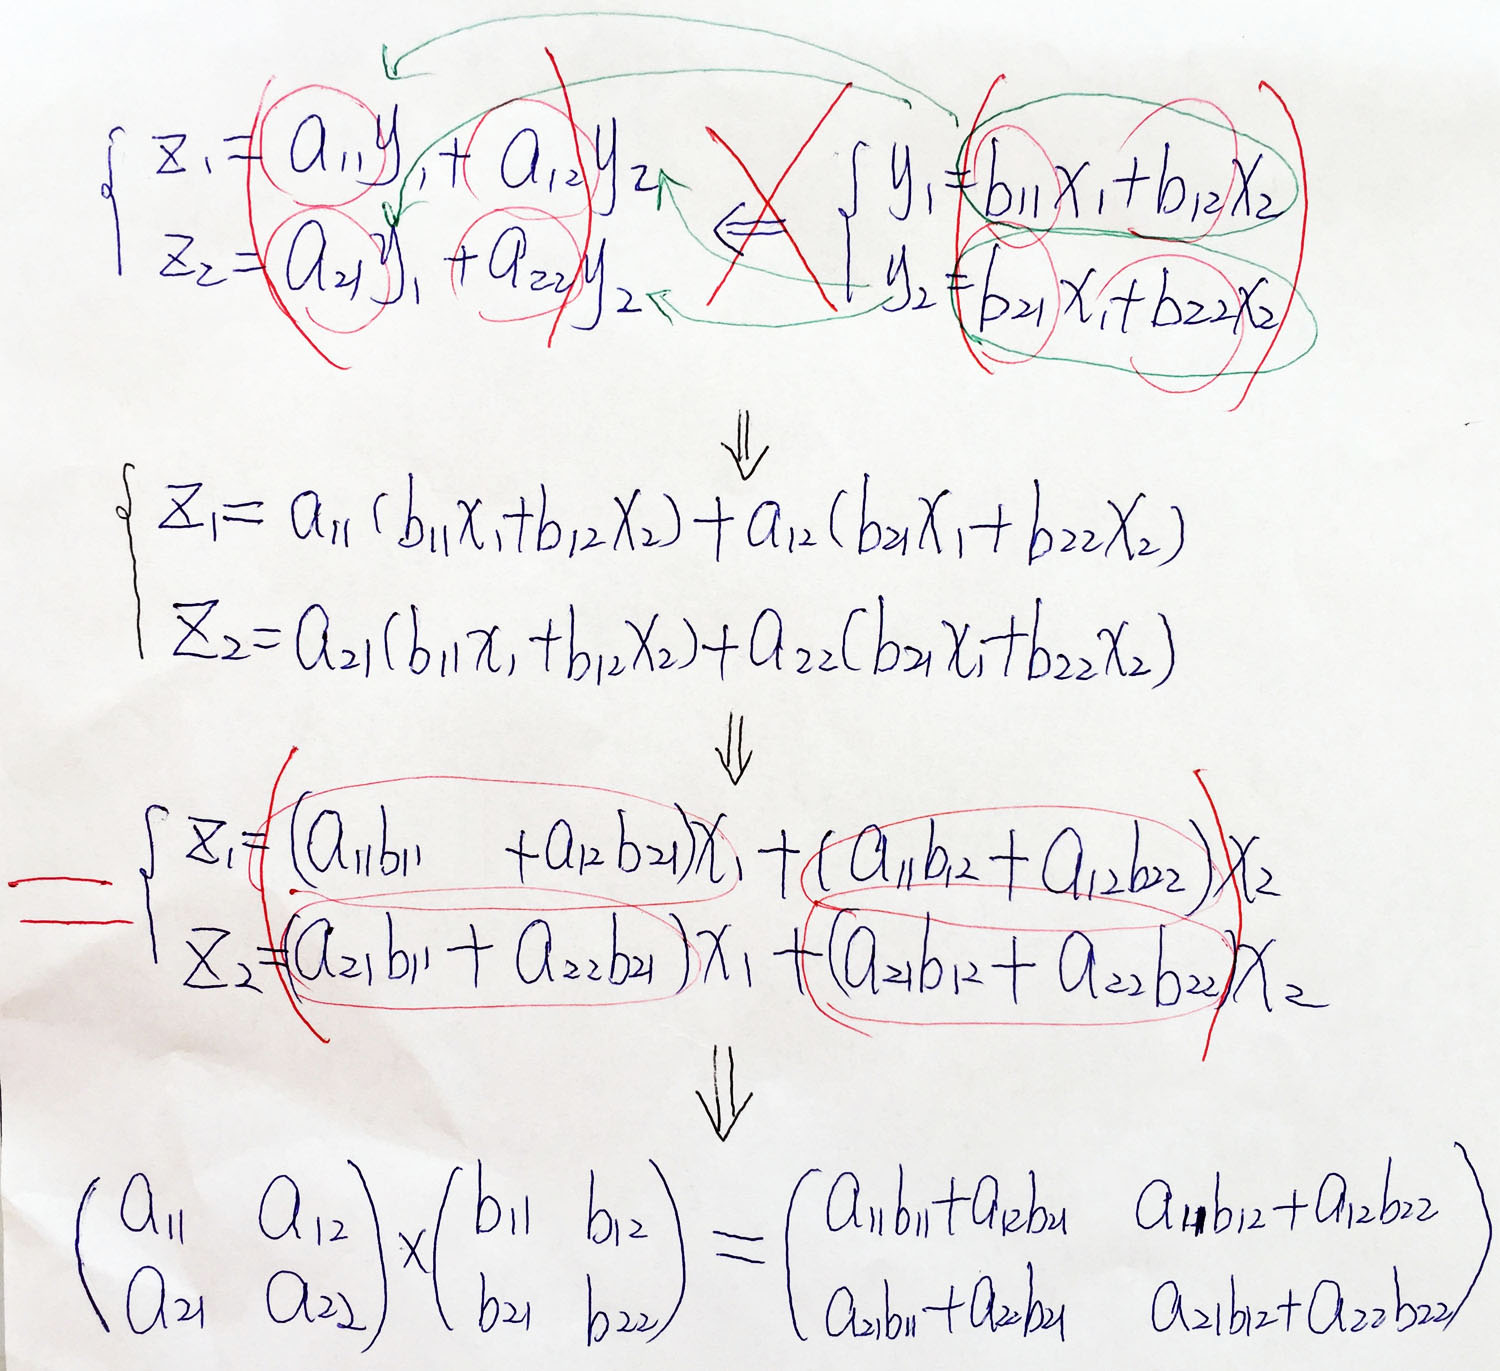 { z₁ = a₁₁y₁ + a₁₂y₂ ⇐ { y₁ = b₁₁x₁ + b₁₂x₂
z₂ = a₂₁y₁ + a₂₂y₂ × y₂ = b₂₁x₁ + b₂₂x₂
⇓
{ z₁ = a₁₁(b₁₁x₁+b₁₂x₂) + a₁₂(b₂₁x₁+b₂₂x₂)
z₂ = a₂₁(b₁₁x₁+b₁₂x₂) + a₂₂(b₂₁x₁+b₂₂x₂)
⇓
= { z₁ = (a₁₁b₁₁ + a₁₂b₂₁)x₁ + (a₁₁b₁₂ + a₁₂b₂₂)x₂
z₂ = (a₂₁b₁₁ + a₂₂b₂₁)x₁ + (a₂₁b₁₂ + a₂₂b₂₂)x₂
⇓
( a₁₁ a₁₂ ) × ( b₁₁ b₁₂ ) = ( a₁₁b₁₁+a₁₂b₂₁ a₁₁b₁₂+a₁₂b₂₂ )
( a₂₁ a₂₂ ) ( b₂₁ b₂₂ ) ( a₂₁b₁₁+a₂₂b₂₁ a₂₁b₁₂+a₂₂b₂₂ )